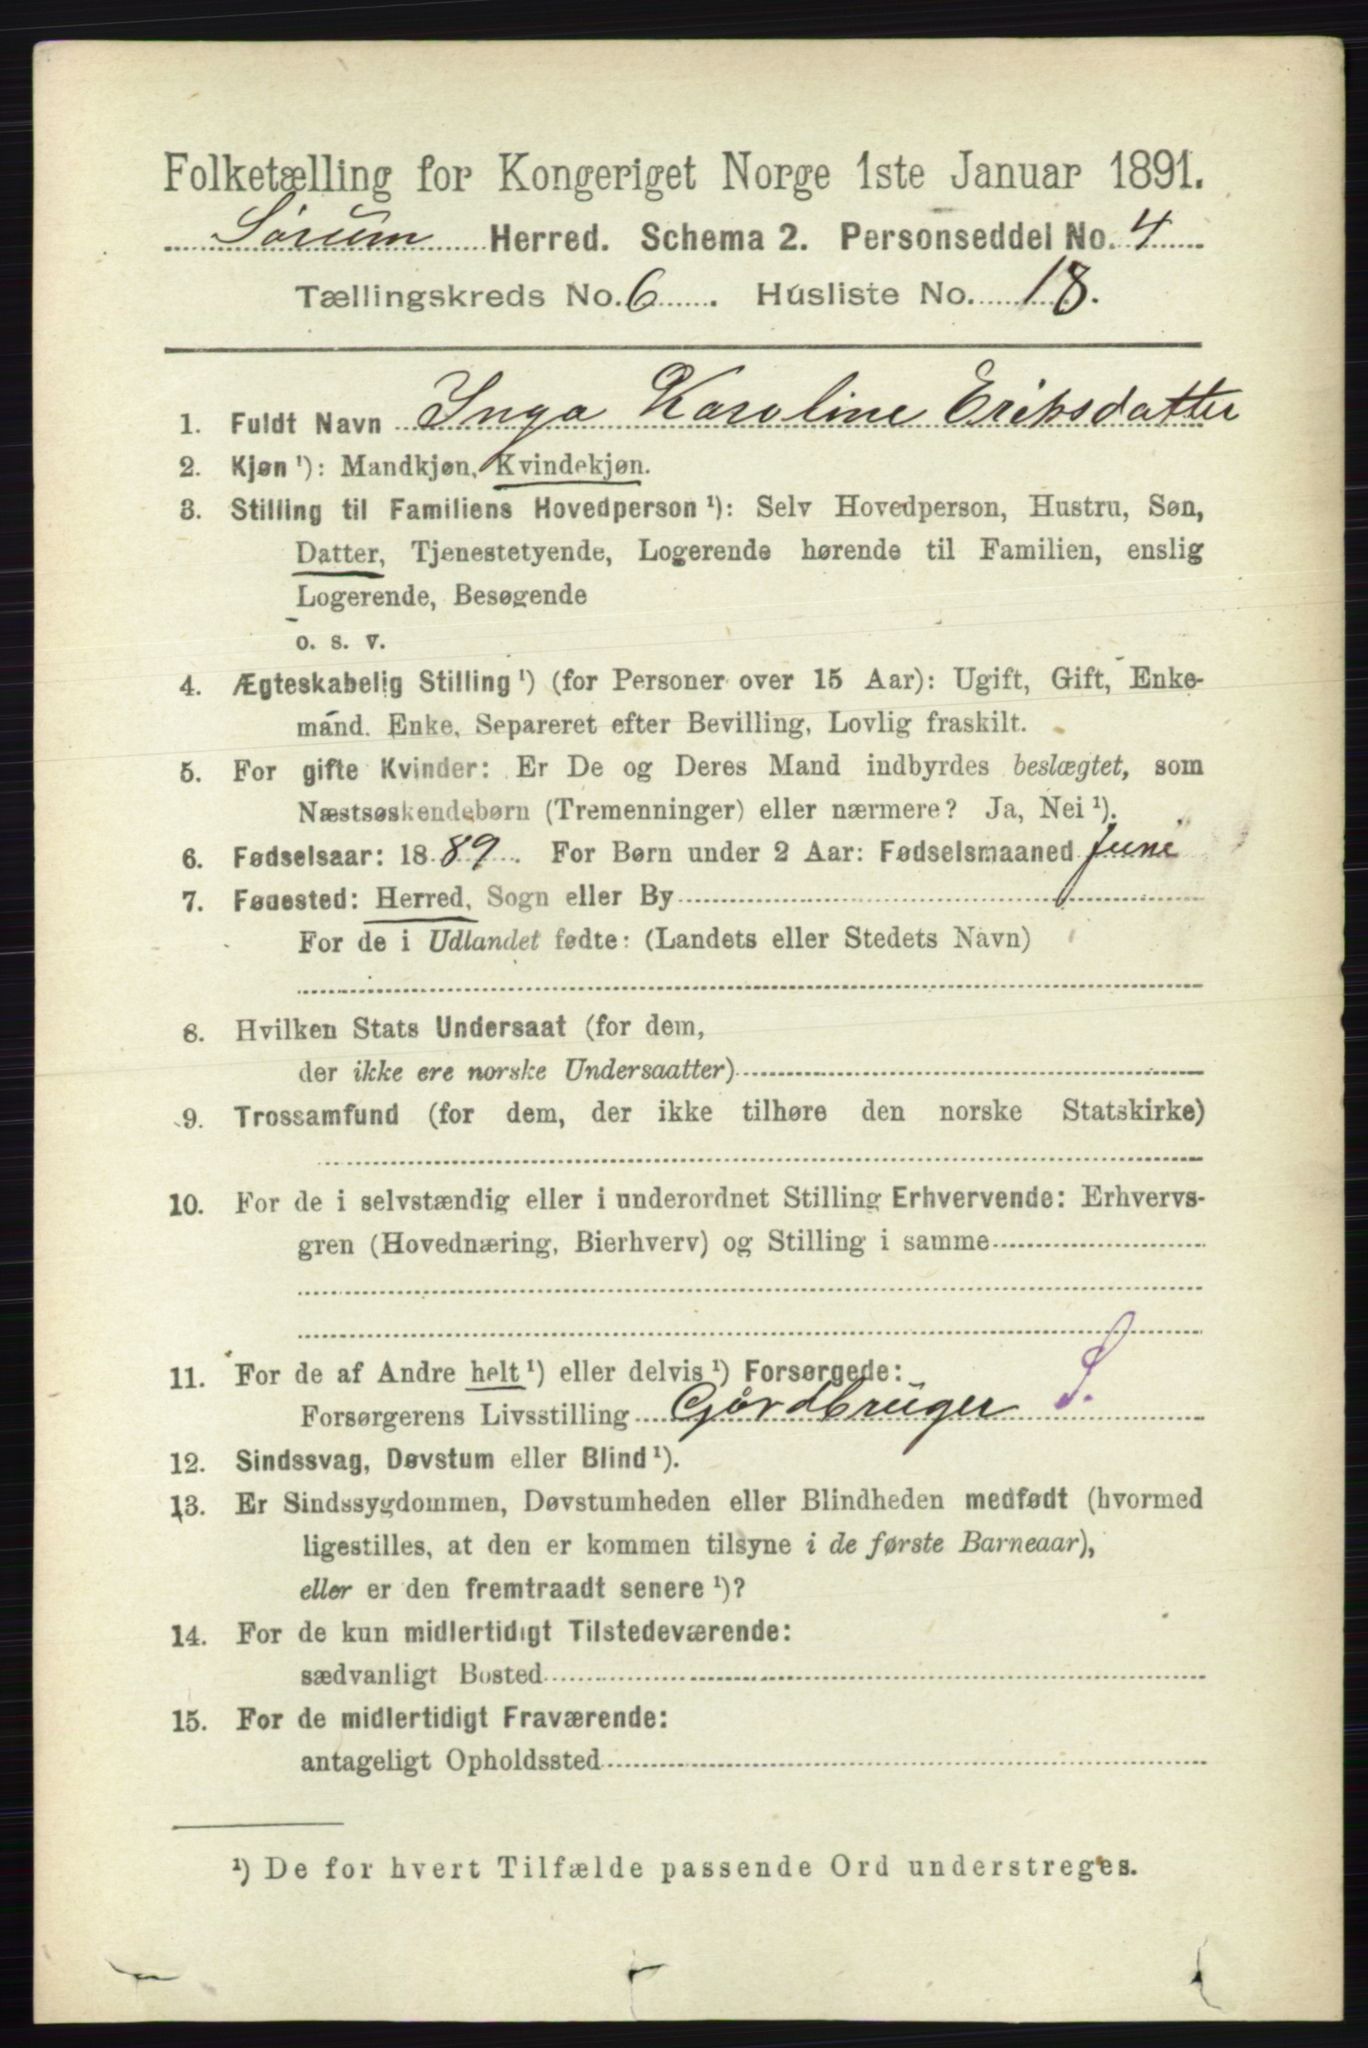 Folketælling for Kongeriget Norge 1ste Januar 1891.
Sørum Herred. Schema 2. Personseddel No. 4
Tællingskreds No. 6. Husliste No. 18.
1. Fuldt Navn Inga Karoline Eriksdatter
2. Kjøn ¹): Mandkjøn, Kvindekjøn.
3. Stilling til Familiens Hovedperson ¹): Selv Hovedperson, Hustru, Søn,
Datter, Tjenestetyende, Logerende hørende til Familien, enslig
Logerende, Besøgende
o. s. v.
4. Ægteskabelig Stilling ¹) (for Personer over 15 Aar): Ugift, Gift, Enke-
mand. Enke, Separeret efter Bevilling, Lovlig fraskilt.
5. For gifte Kvinder: Er De og Deres Mand indbyrdes beslægtet, som
Næstsøskendebørn (Tremenninger) eller nærmere? Ja, Nei ¹).
6. Fødselsaar: 1889. For Børn under 2 Aar: Fødselsmaaned Juni
7. Fødested: Herred, Sogn eller By
For de i Udlandet fødte: (Landets eller Stedets Navn)
8. Hvilken Stats Undersaat (for dem,
der ikke ere norske Undersaatter)
9. Trossamfund (for dem, der ikke tilhøre den norske Statskirke)
10. For de i selvstændig eller i underordnet Stilling Erhvervende: Erhvervs-
gren (Hovednæring, Bierhverv) og Stilling i samme
11. For de af Andre helt ¹) eller delvis ¹) Forsørgede:
Forsørgerens Livsstilling Gårdbruger S.
12. Sindssvag, Døvstum eller Blind ¹).
13. Er Sindssygdommen, Døvstumheden eller Blindheden medfødt (hvormed
ligestilles, at den er kommen tilsyne i de første Barneaar),
eller er den fremtraadt senere ¹)?
14. For de kun midlertidigt Tilstedeværende:
sædvanligt Bosted
15. For de midlertidigt Fraværende:
antageligt Opholdssted
¹) De for hvert Tilfælde passende Ord understreges.